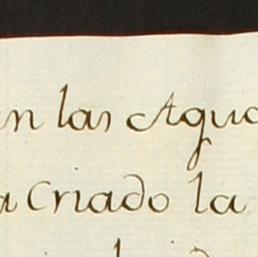 n las Agua
a criado la